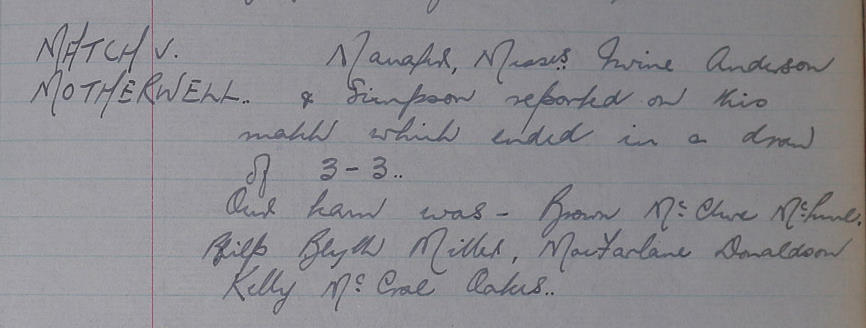 MATCH V. Manager, Messrs Irvine Anderson
MOTHERWELL.. & Simpson reported on this
match which ended in a draw
of 3-3..
Our team was - Brown McClure McKune.
Philp Blyth Miller, MacFarlane Donaldson
Kelly McCrae Oakes..